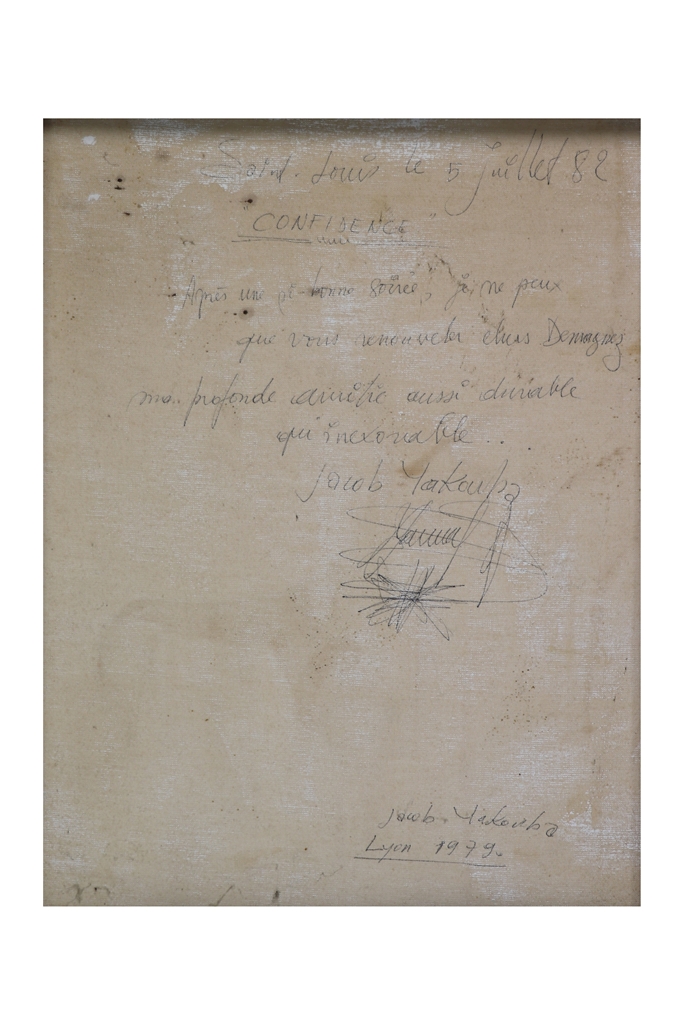 Saint-Louis le 5 Juillet 82
"CONFIDENCE"
Après une si bonne soirée, je ne peux
que vous renouveler chers
ma profonde amitié aussi durable
qu'inexorable...
Jacob Yakouba
Jacob Yakouba
Lyon 1979.